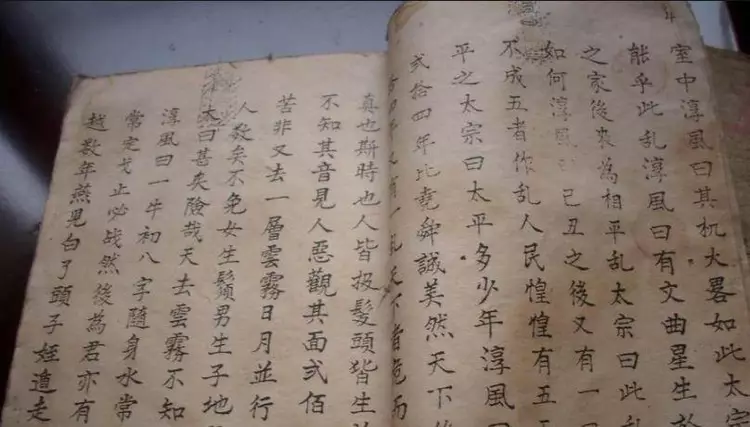 室中淳風曰其机大畧如此太
能乎此乱淳風曰有文曲星生於
之家後喪為相平乱太宗曰此乱
如何淳風 己丑之後又有一
不成五者作乱人民惶惶有五
平之太宗曰太平多少年淳風曰
弍拾四年比堯舜誠美然天下
又有一乱天下者 而
真也斯時也人皆扱髮頭皆生
不知其音見人惡觀其面弍佰
苦非又去一層雲霧日月並行
人数矣不免女生鬚男生子地
曰甚矣險哉天去雲霧不知
淳風曰一牛初八字隨身水常
常定戈止必战然後為君亦有
越数年燕見白了頭子姪遁走